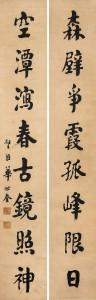 森壁爭霞孤峰限日
空潭瀉春古鏡照神
華世奎